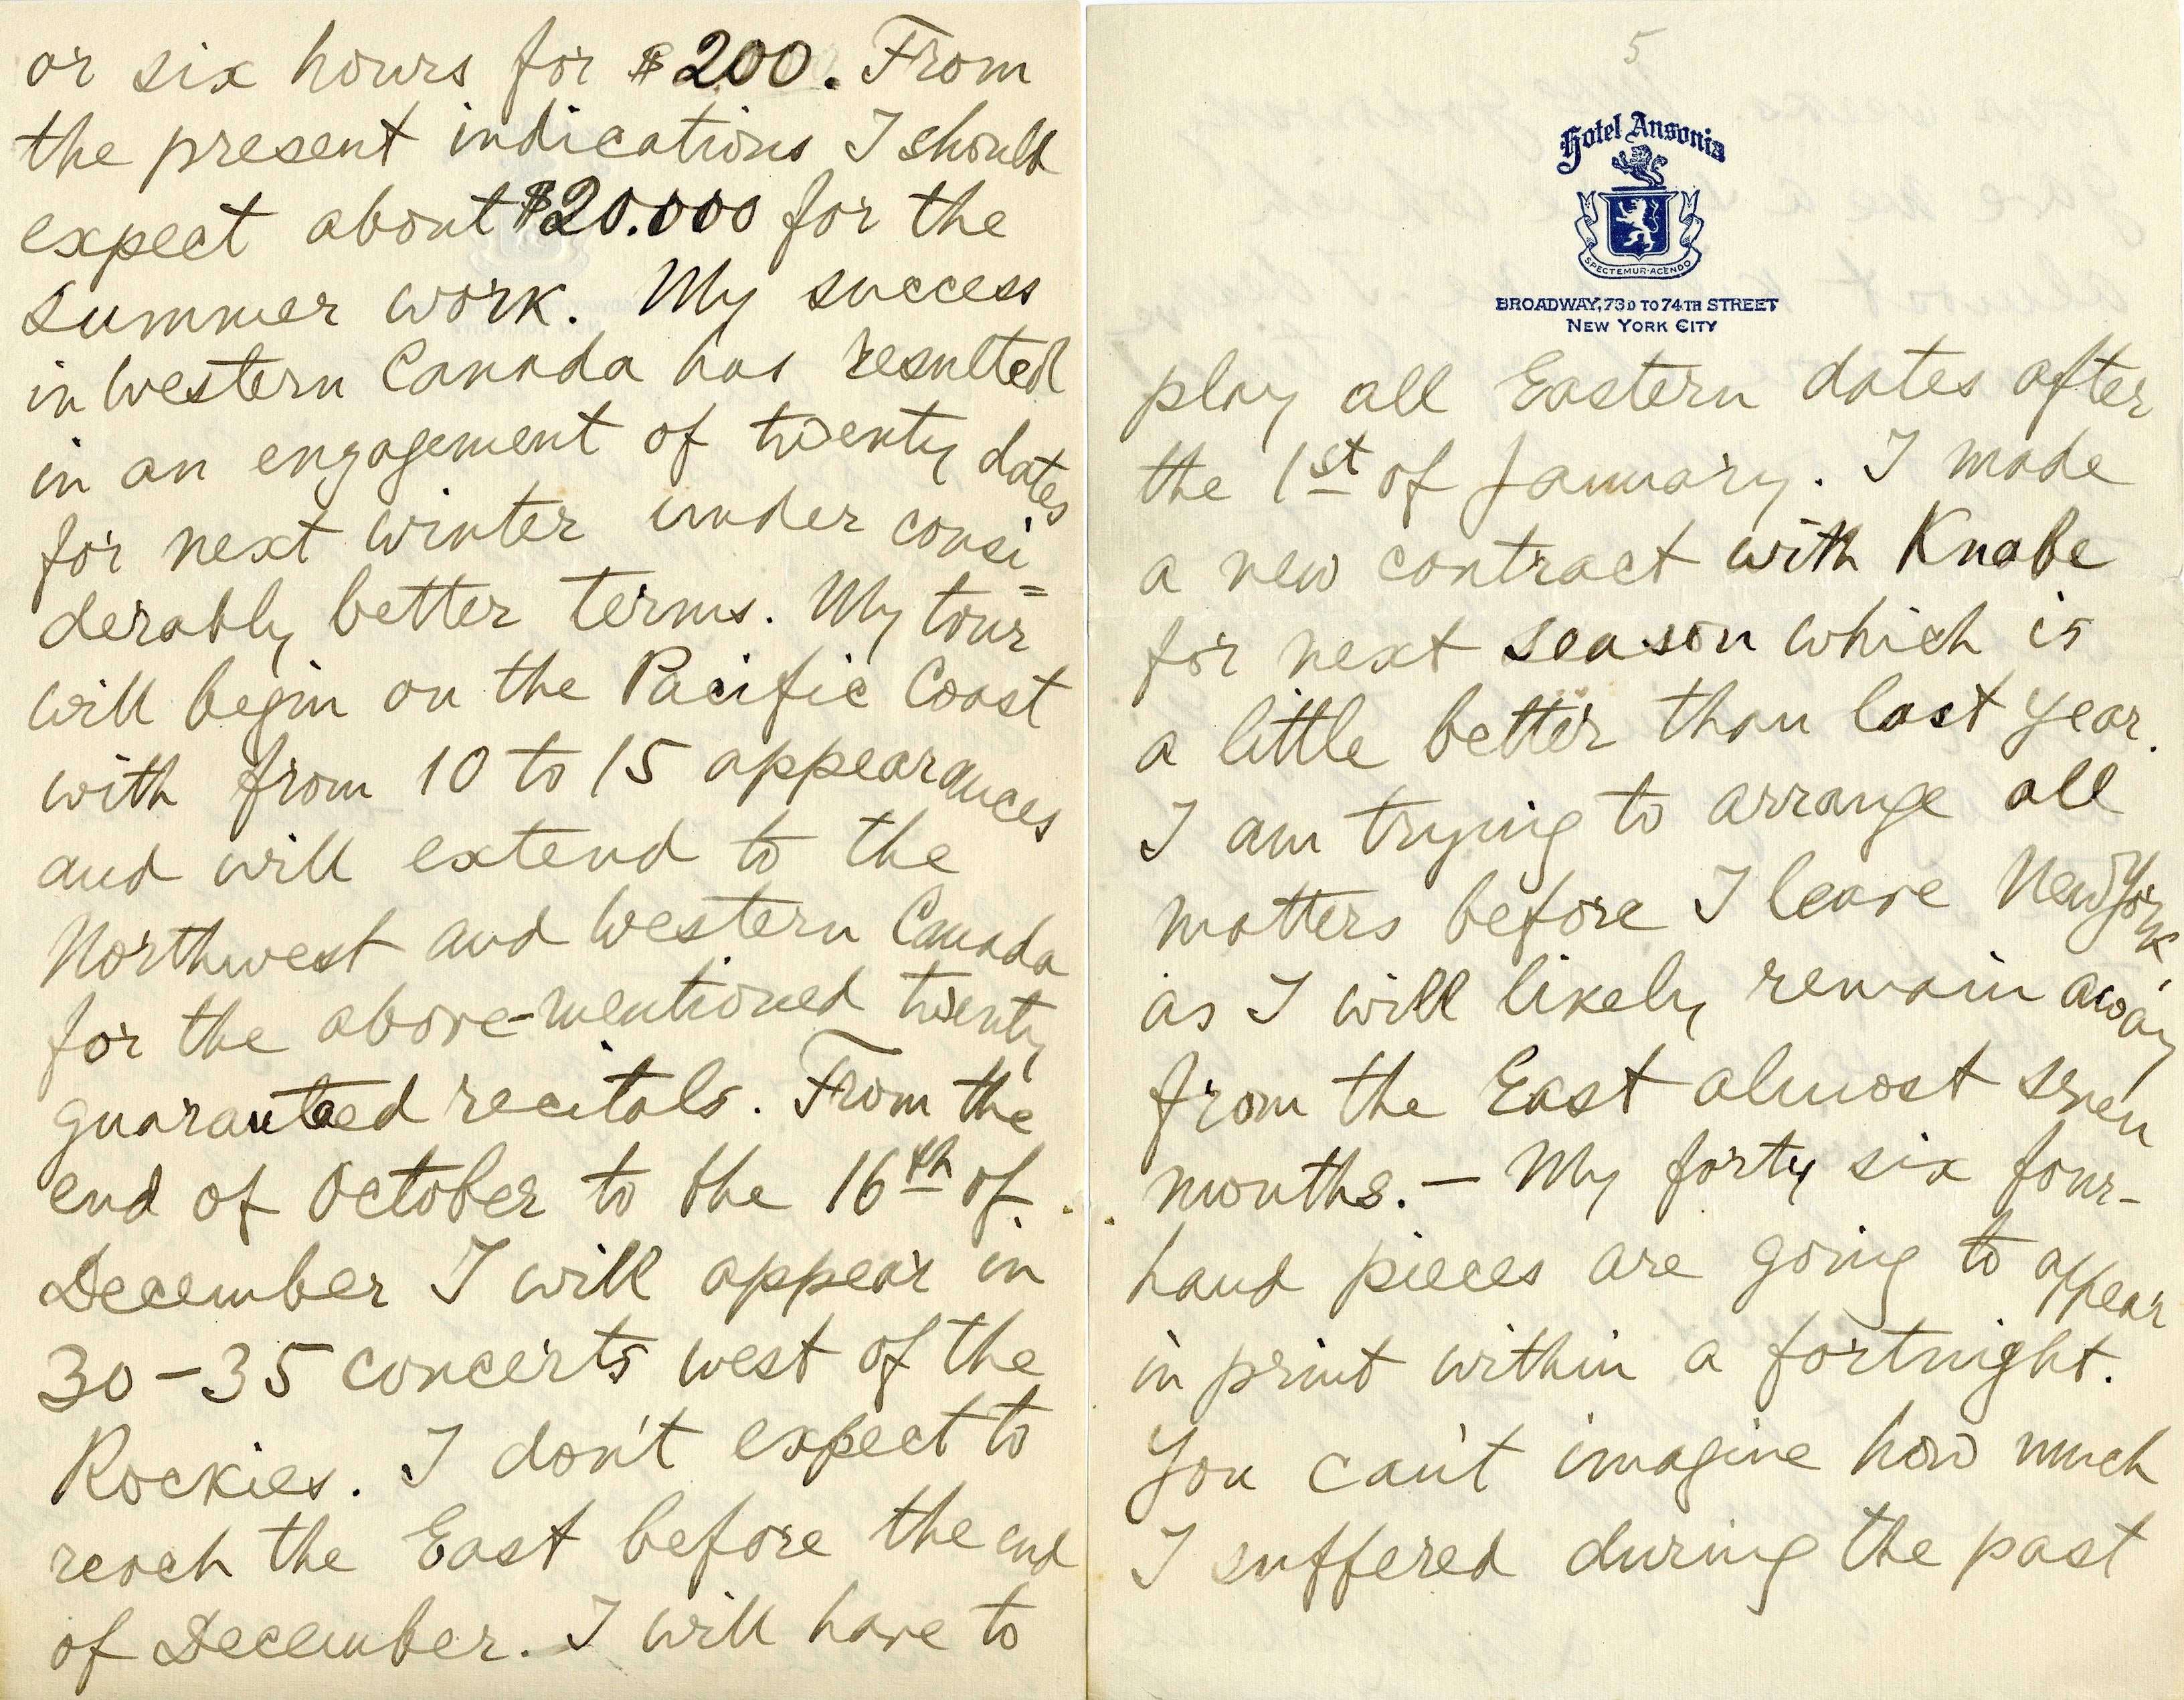 or six hours for $200. From
the present indications I should
expect about $20.000 for the
summer work. My success
in Western Canada has resulted
in an engagement of twenty dates
for next winter under consi=
derably better terms. My tour
will begin on the Pacific Coast
with from 10 to 15 appearances
and will extend to the
Northwest and Western Canada
for the above-mentioned twenty
guaranteed recitals. From the
end of October to the 16th of
December I will appear in
30-35 concerts west of the
Rockies. I don't expect to
reach the East before the end
of December. I will have to
5
Hotel Ansonia
SPECTEMUR·ACENDO
BROADWAY, 73D TO 74TH STREET
NEW YORK CITY
play all Eastern dates after
the 1st of January. I made
a new contract with Knabe
for next season which is
a little better than last year.
I am trying to arrange all
matters before I leave New York,
as I will likely remain away
from the East almost seven
months. — My forty six four-
hand pieces are going to appear
in print within a fortnight.
You can't imagine how much
I suffered during the past